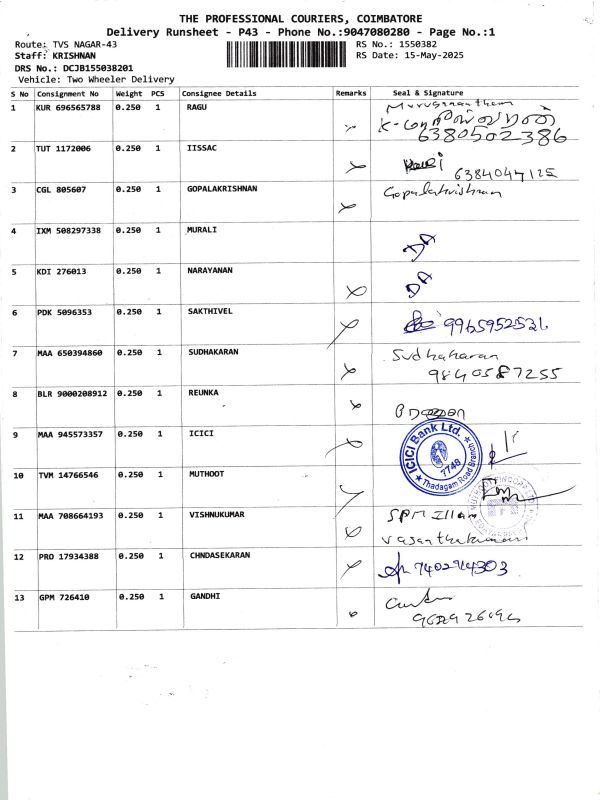 THE PROFESSIONAL COURIERS, COIMBATORE
Delivery Runsheet - P43 - Phone No.:9047080280 - Page No.:1
Route: TVS NAGAR-43 RS No.: 1550382
Staff: KRISHNAN RS Date: 15-May-2025
DRS No.: DCJB155038201
Vehicle: Two Wheeler Delivery
S No Consignment No Weight PCS Consignee Details Remarks Seal & Signature
1 KUR 696565788 0.250 1 RAGU
6380502386
2 TUT 1172006 0.250 1 IISSAC
6384047125
3 CGL 805607 0.250 1 GOPALAKRISHNAN Gopalakrishnan
4 IXM 508297338 0.250 1 MURALI DA
5 KDI 276013 0.250 1 NARAYANAN DA
6 PDK 5096353 0.250 1 SAKTHIVEL 9965952521
7 MAA 650394860 0.250 1 SUDHAKARAN Sudhakaran
9840587255
8 BLR 9000208912 0.250 1 REUNKA
9 MAA 945573357 0.250 1 ICICI ICICI Bank Ltd. 7749 Thadagam Road Branch
10 TVM 14766546 0.250 1 MUTHOOT
11 MAA 708664193 0.250 1 VISHNUKUMAR SPM Illam
12 PRO 17934388 0.250 1 CHNDASEKARAN
13 GPM 726410 0.250 1 GANDHI